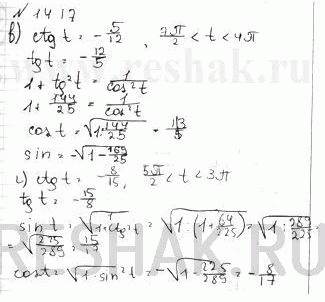 N 1417
в) ctg t = -5/12, 7π/2 < t < 4π
tg t = -12/5
1 + tg²t = 1/cos²t
1 + 144/25 = 1/cos²t
cos t = √(1 · 144/25) = 13/5
sin = -√(1 - 169/25)
г) ctg t = -8/15, 5π/2 < t < 3π
tg t = -15/8
sin t = √(1/(1+ctg²t)) = √(1 : (1 + 64/225)) = √(1 : 289/225) =
= √(225/289) = 15/17
cos t = √(1 - sin²t) = -√(1 - 225/289) = -8/17